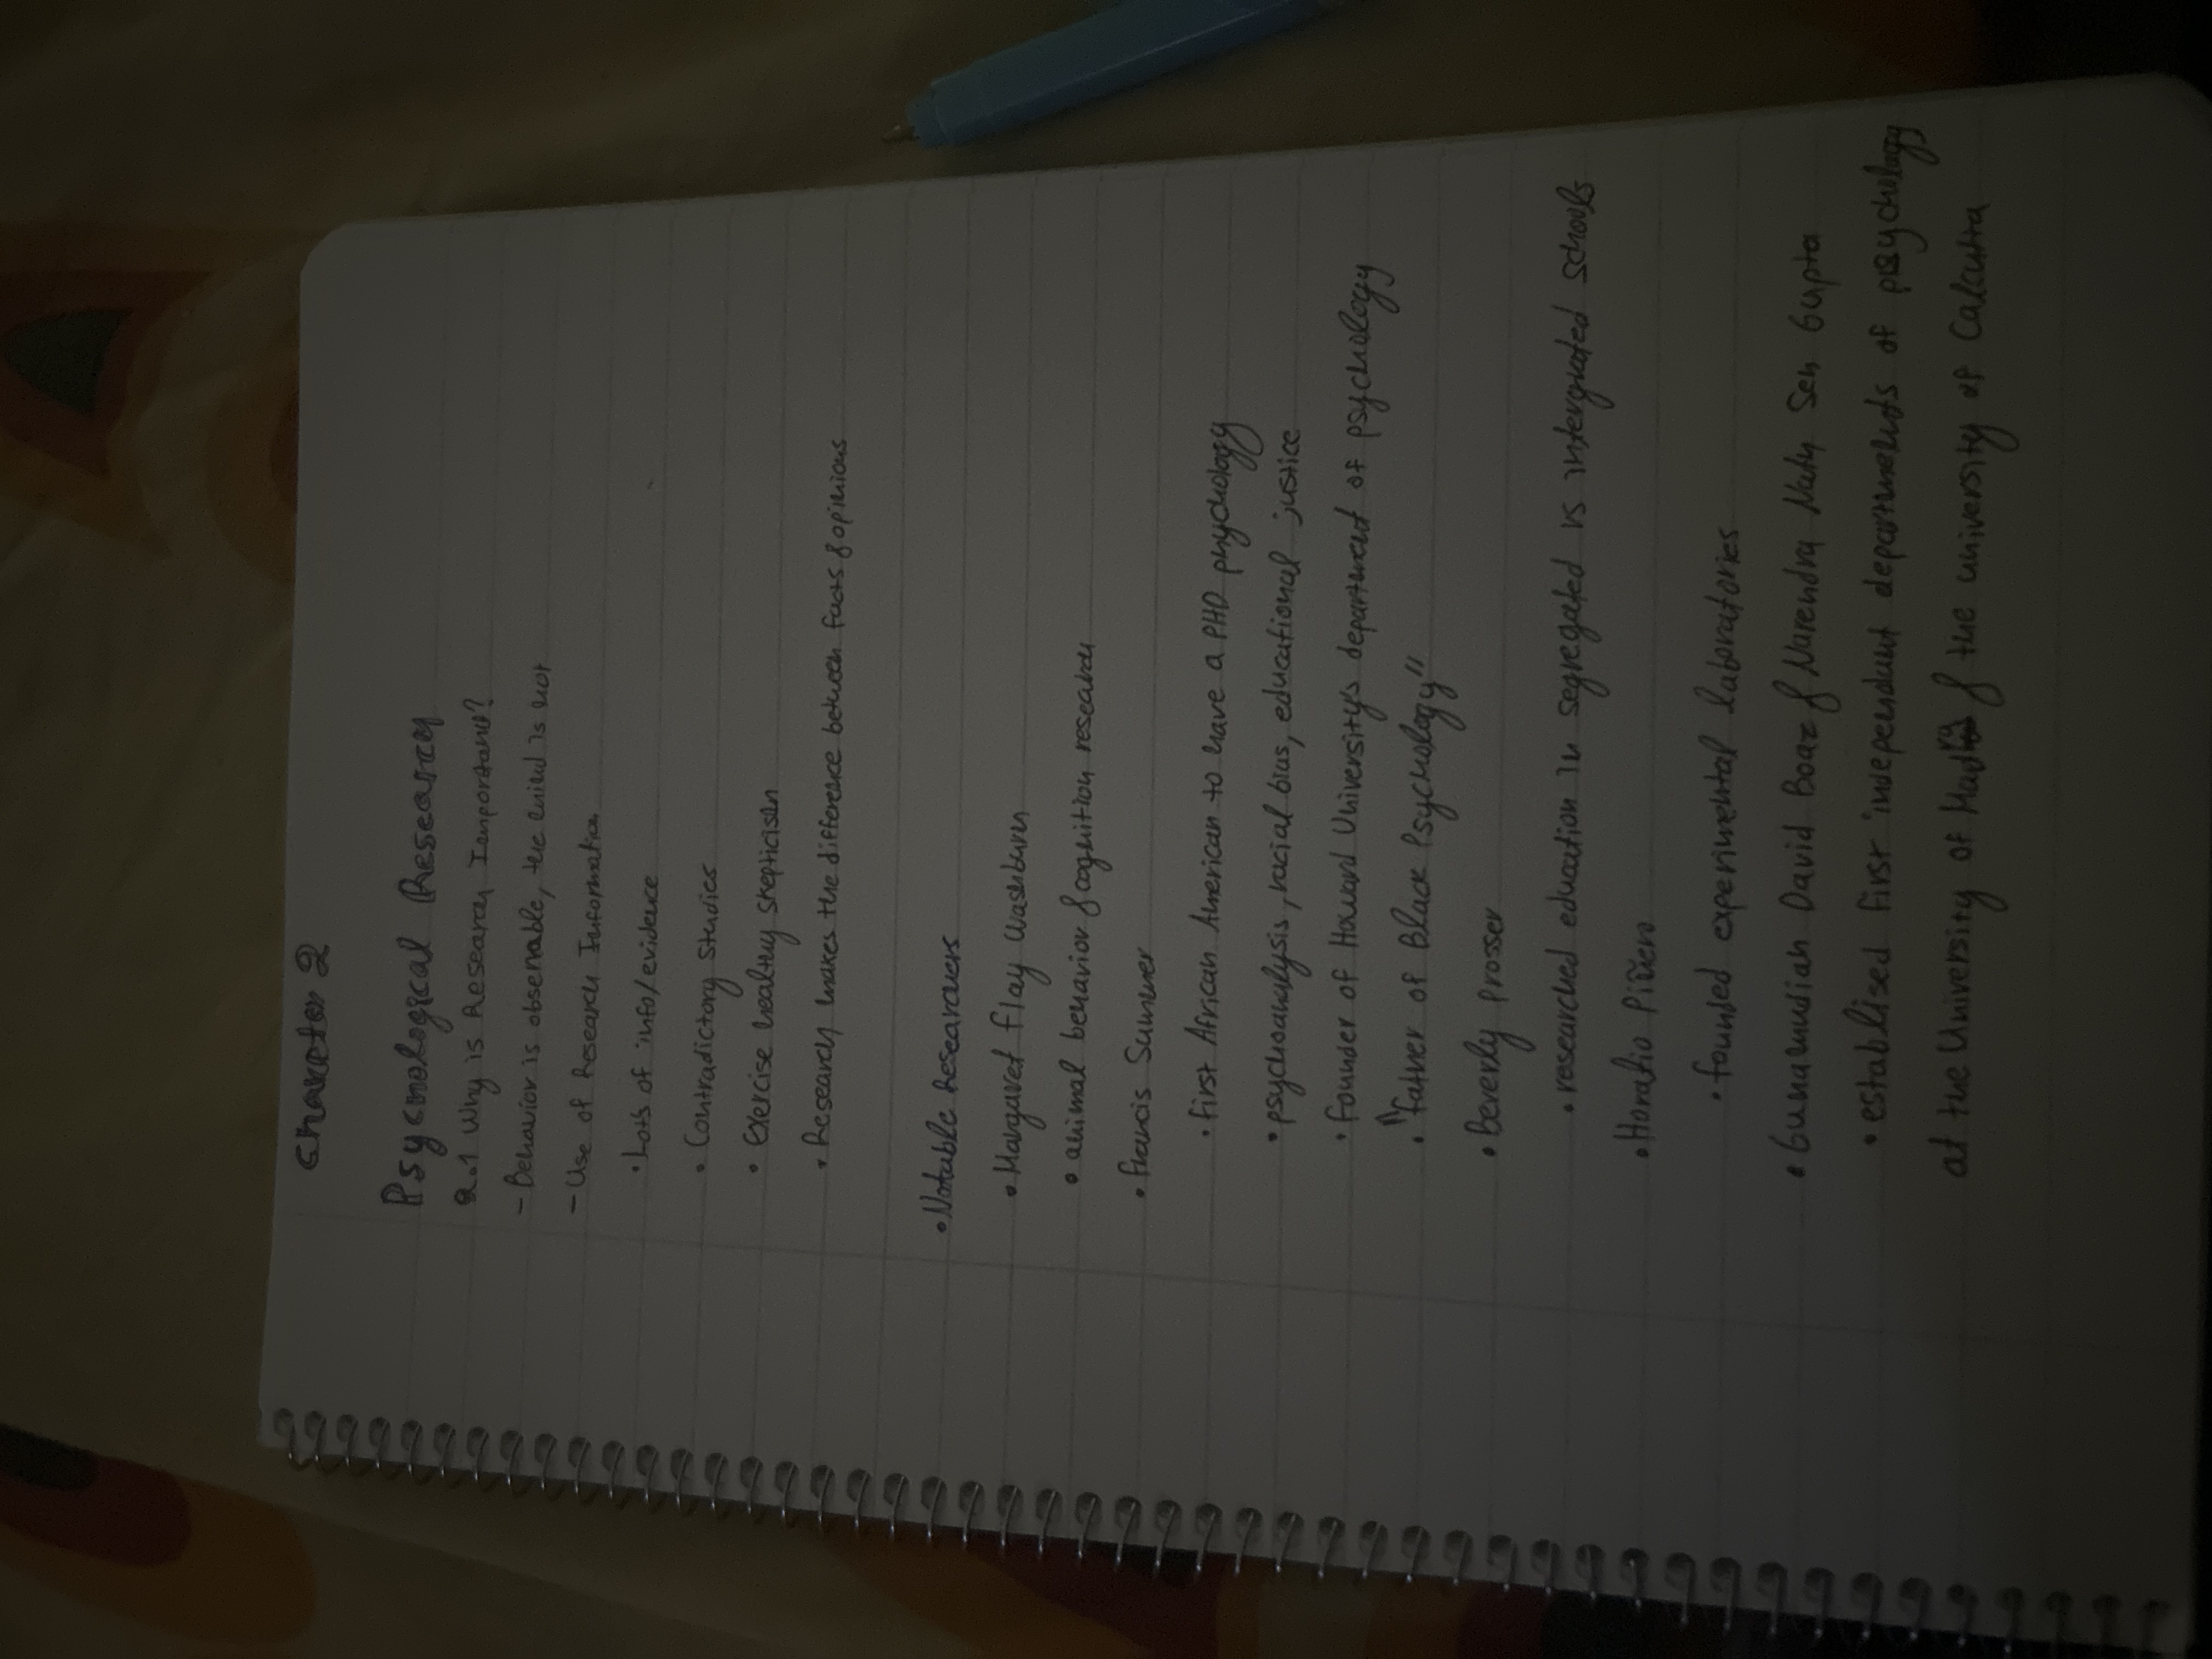 Chapter 2
Psychological Research
2.1 Why is Research Important?
- Behavior is observable, the mind is not
- Use of Research Information
• Lots of info/evidence
• Contradictory studies
• Exercise healthy skepticism
• Research makes the difference between facts & opinions
• Notable Researchers
• Margaret Flay Washburn
• animal behavior & cognition research
• Francis Sumner
• first African American to have a PHD phychology
• psychoanalysis, racial bias, educational justice
• founder of Howard Universitys department of psychology
• "father of Black Psychology"
• Beverly Prosser
• researched education in segregated vs intergrated schools
• Horatio Piñero
• founded experimental laboratories
• Gunamudian David Boaz & Narendra Nath Sen Gupta
• establised first independent departments of psychology
at the University of Madra & the university of Calcutta